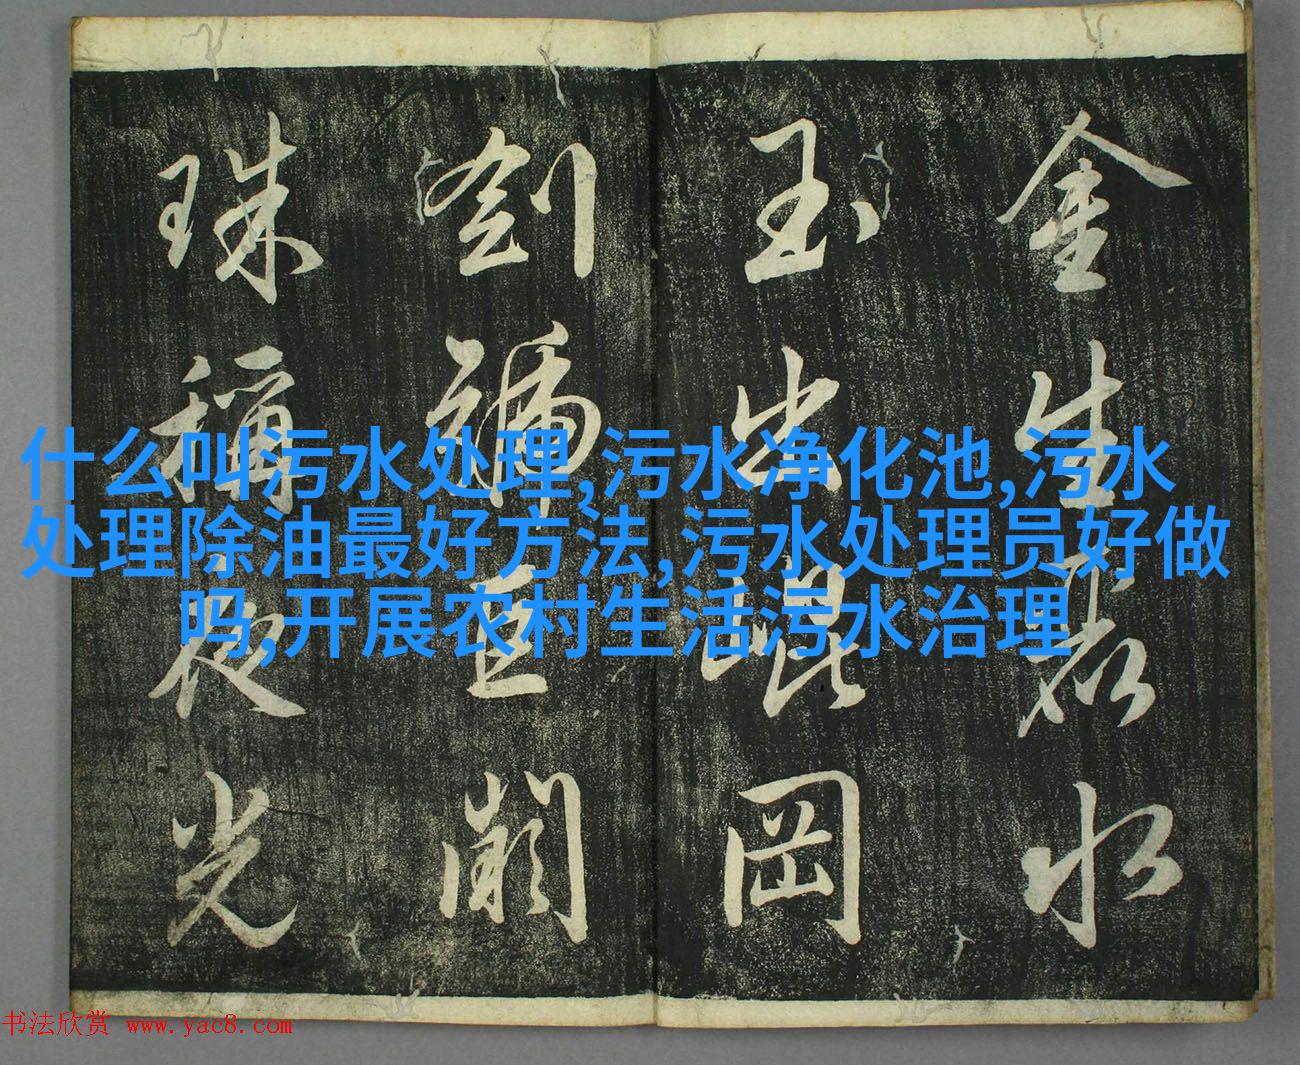 金生麗水
玉出崐岡
劍號巨闕
珠稱夜光
什么叫污水处理,污水净化池,污水
处理除油最好方法,污水处理员好做
吗,开展农村生活污水治理
书法欣赏 www.yac8.com